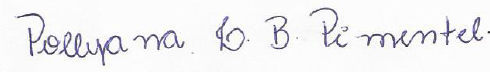 Pollyana D. B. Pimentel.